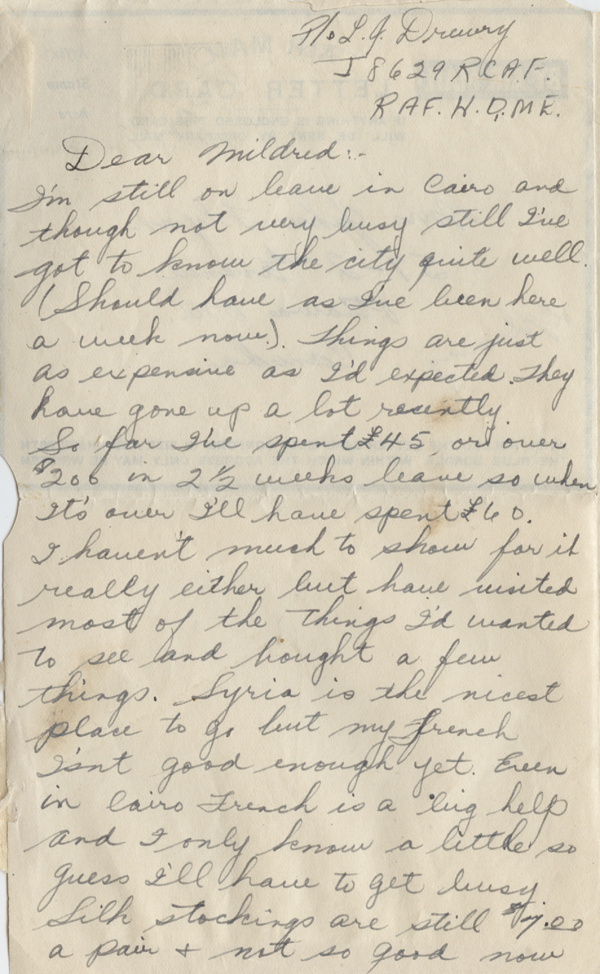 P/o L. J. Drewry
J 8629 RCAF.
RAF. H. Q. M.E.
Dear Mildred:-
I'm still on leave in Cairo and
though not very busy still I've
got to know the city quite well.
(Should have as I've been here
a week now.). Things are just
as expensive as I'd expected. They
have gone up a lot recently
So far I've spent £45, or over
$200 in 2½ weeks leave so when
It's over I'll have spent £60.
I haven't much to show for it
really either but have visited
most of the things I'd wanted
to see and bought a few
things. Syria is the nicest
place to go but my french
isnt good enough yet. Even
in Cairo French is a big help
and I only know a little so
guess I'll have to get busy
Silk stockings are still $7.00
a pair & not so good now